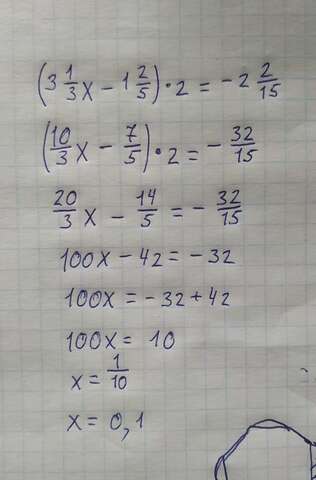 (3 1/3 x - 1 2/5) · 2 = -2 2/15
(10/3 x - 7/5) · 2 = - 32/15
20/3 x - 14/5 = - 32/15
100x - 42 = -32
100x = -32 + 42
100x = 10
x = 1/10
x = 0,1